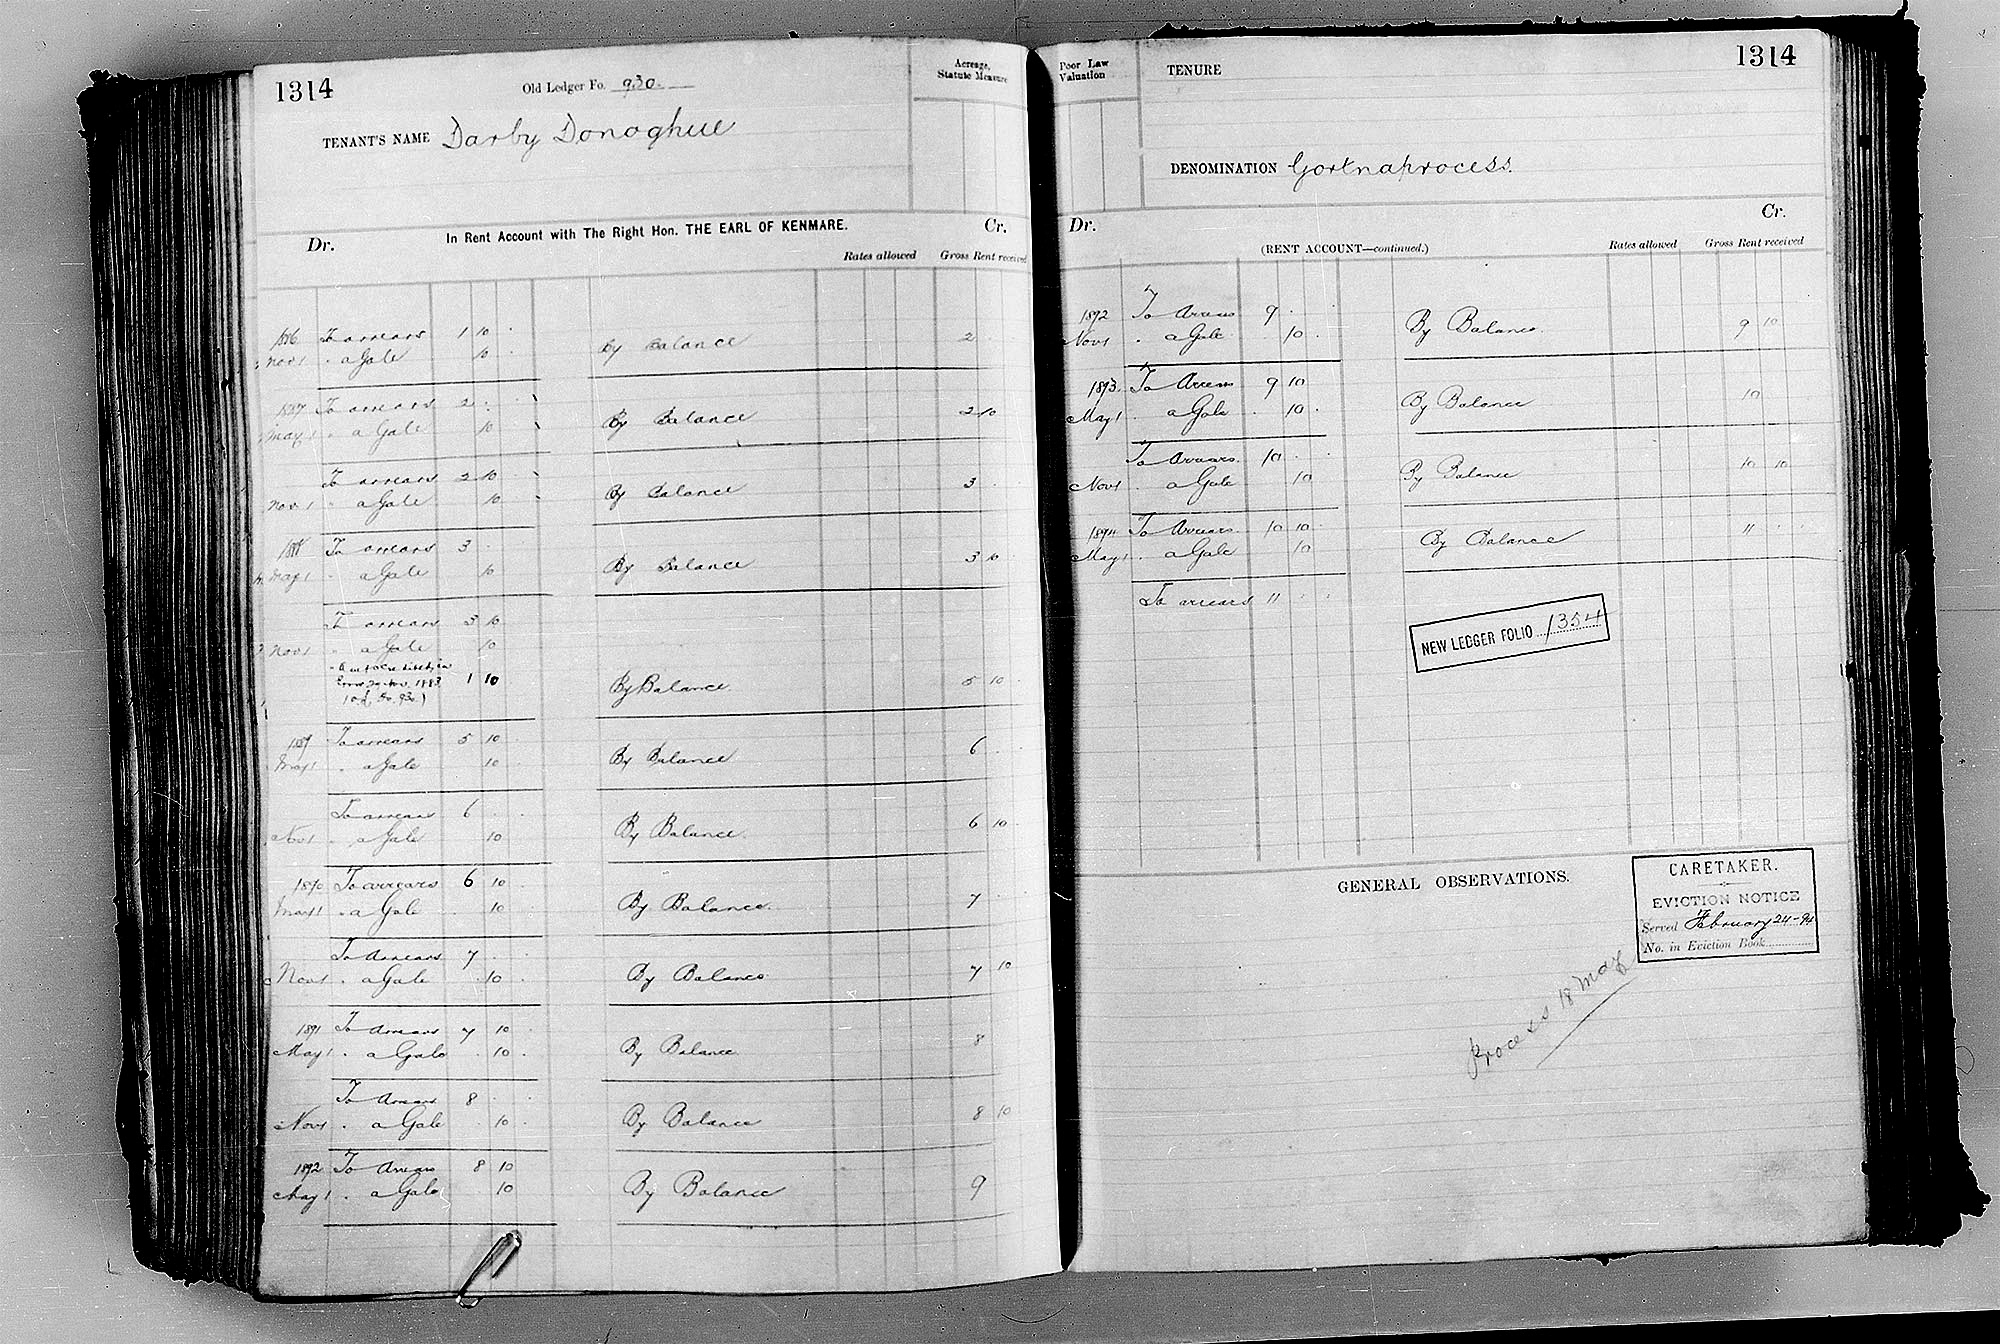 1314
Old Ledger Fo. 930.
Acreage, Statute Measure
TENANT'S NAME Darby Donoghue
In Rent Account with The Right Hon. THE EARL OF KENMARE.
Dr. Cr.
Rates allowed Gross Rent received
1886 To arrears 1 10
Nov 1 " a Gale 10 By Balance 2
1887 To arrears 2
May 1 " a Gale 10 By Balance 2 10
To arrears 2 10
Nov 1 " a Gale 10 By Balance 3
1888 To arrears 3
May 1 " a Gale 10 By Balance 3 10
To arrears 3 10
Nov 1 " a Gale 10
1883 1 10 By Balance 5 10
fo. 930)
1889 To arrears 5 10
May 1 " a Gale 10 By Balance 6
To arrears 6
Nov 1 " a Gale 10 By Balance 6 10
1890 To arrears 6 10
May 1 " a Gale 10 By Balance 7
To Arrears 7
Nov 1 " a Gale 10 By Balance 7 10
1891 To Arrears 7 10
May 1 " a Gale 10 By Balance 8
To Arrears 8
Nov 1 " a Gale 10 By Balance 8 10
1892 To Arrears 8 10
May 1 " a Gale 10 By Balance 9
Poor Law Valuation
TENURE
1314
DENOMINATION Gortnaprocess.
Dr. Cr.
(RENT ACCOUNT—continued.)
Rates allowed Gross Rent received
1892 To Arrears 9
Nov 1 " a Gale 10 By Balance 9 10
1893 To Arrears 9 10
May 1 " a Gale 10 By Balance 10
To Arrears 10
Nov 1 " a Gale 10 By Balance 10 10
1894 To Arrears 10 10
May 1 " a Gale 10 By Balance 11
To arrears 11
NEW LEDGER FOLIO 1354
GENERAL OBSERVATIONS.
CARETAKER.
EVICTION NOTICE
Served February 24-94
No. in Eviction Book
Process 18 May